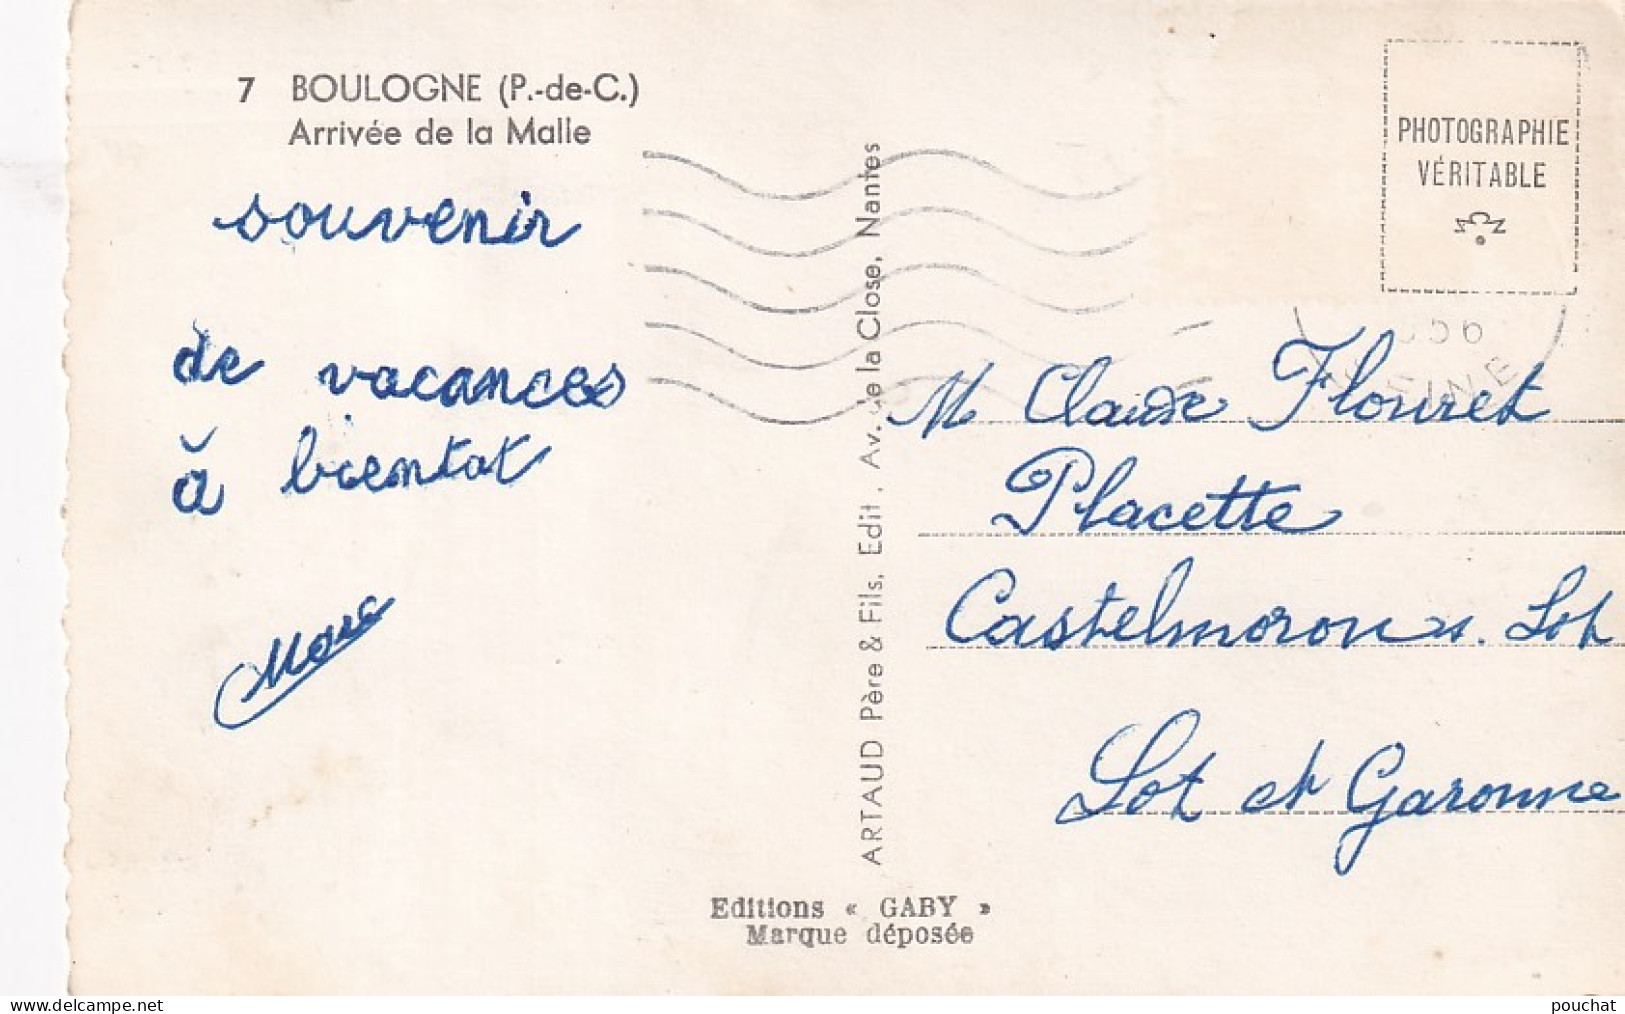 7 BOULOGNE (P.-de-C.)
Arrivée de la Malle
souvenir
de vacances
à bientat
Marc
ARTAUD Père & Fils, Edit., Av. de la Close, Nantes
PHOTOGRAPHIE
VÉRITABLE
56
M Claude Flouret
Placette
Castelmoron s. Lot
Lot et Garonne
Editions « GABY »
Marque déposée
delcampe.net
pouchat